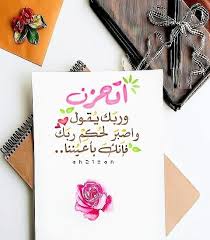 اتحزن
وربك يقول
واصبر لحكم ربك
فإنك بأعيننا..